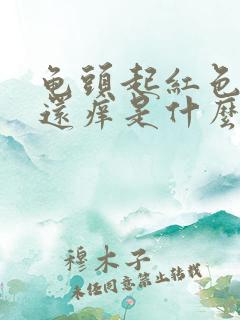 龟頭起紅色
還痒是什麽
穆木子
未经同意禁止转载